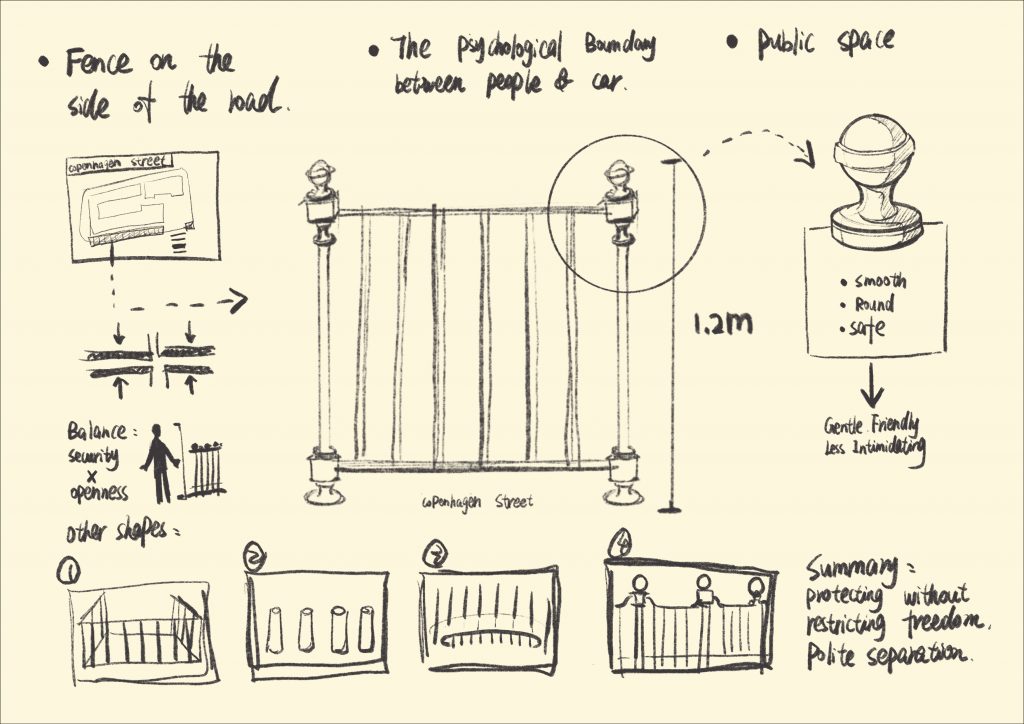 • Fence on the
side of the road.
• The psychological Boundary
between people & car.
• public space
copenhagen street
1.2m
• smooth
• Round
• safe
Gentle Friendly
Less Intimidating
Balance:
security
x
openness
copenhagen street
other shapes:
1
2
3
4
Summary:
protecting without
restricting freedom.
Polite separation.